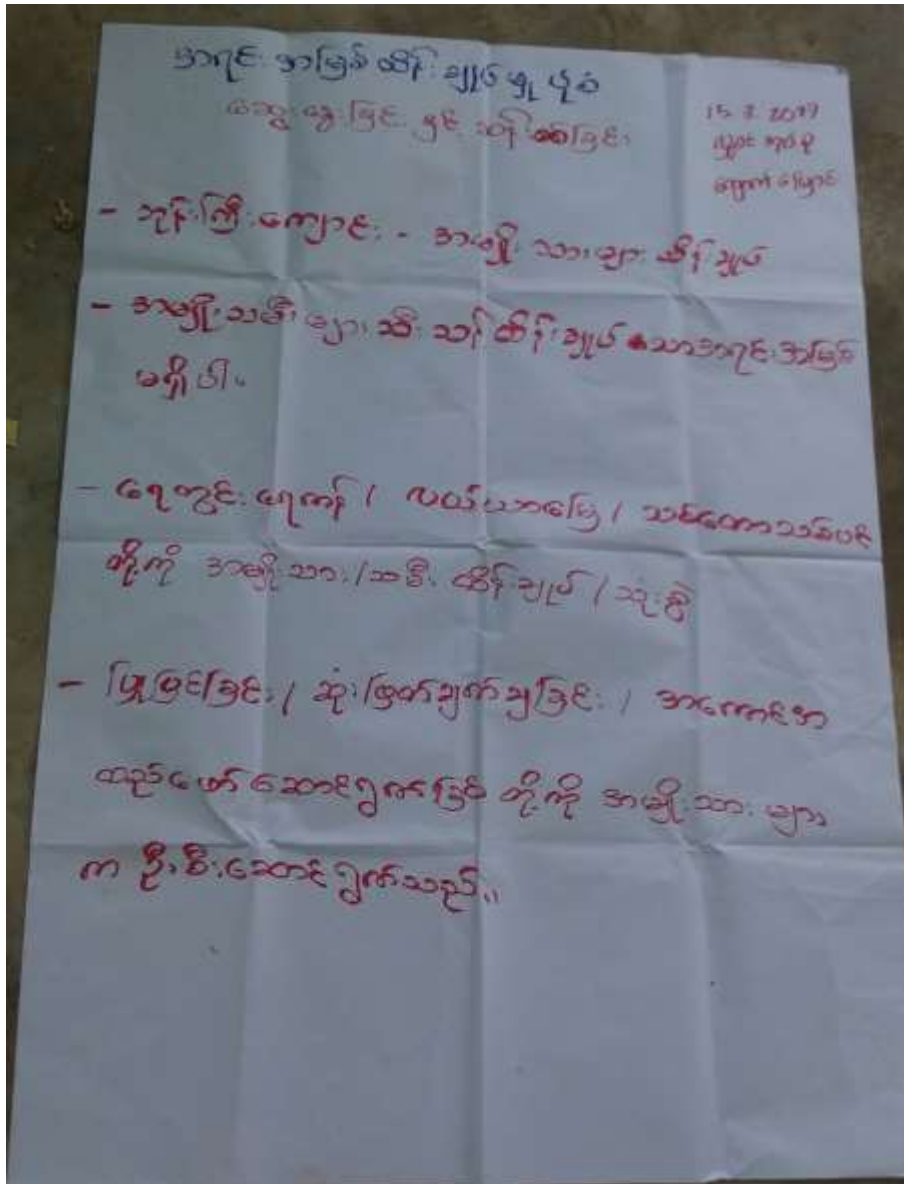 အရင်းအမြစ်ထိန်းချုပ်မှုပုံစံ
ဆွေးနွေးခြင်းနှင့် သုံးသပ်ခြင်း
15.8.2017
- ဘုန်းကြီးကျောင်း - အမျိုးသားများ ထိန်းချုပ်
- အမျိုးသမီးများသီးသန့်ထိန်းချုပ်သောအရင်းအမြစ်
မရှိပါ။
- ရေတွင်းရေကန် / လယ်ယာမြေ / သစ်တောသစ်ပင်
တို့ကို အမျိုးသား/သမီး ထိန်းချုပ် / သုံးစွဲ
- ပြုပြင်ခြင်း / ဆုံးဖြတ်ချက်ချခြင်း / အကောင်အ
ထည်ဖော်ဆောင်ရွက်ခြင်း တို့ကို အမျိုးသားများ
က ဦးစီးဆောင်ရွက်သည်။